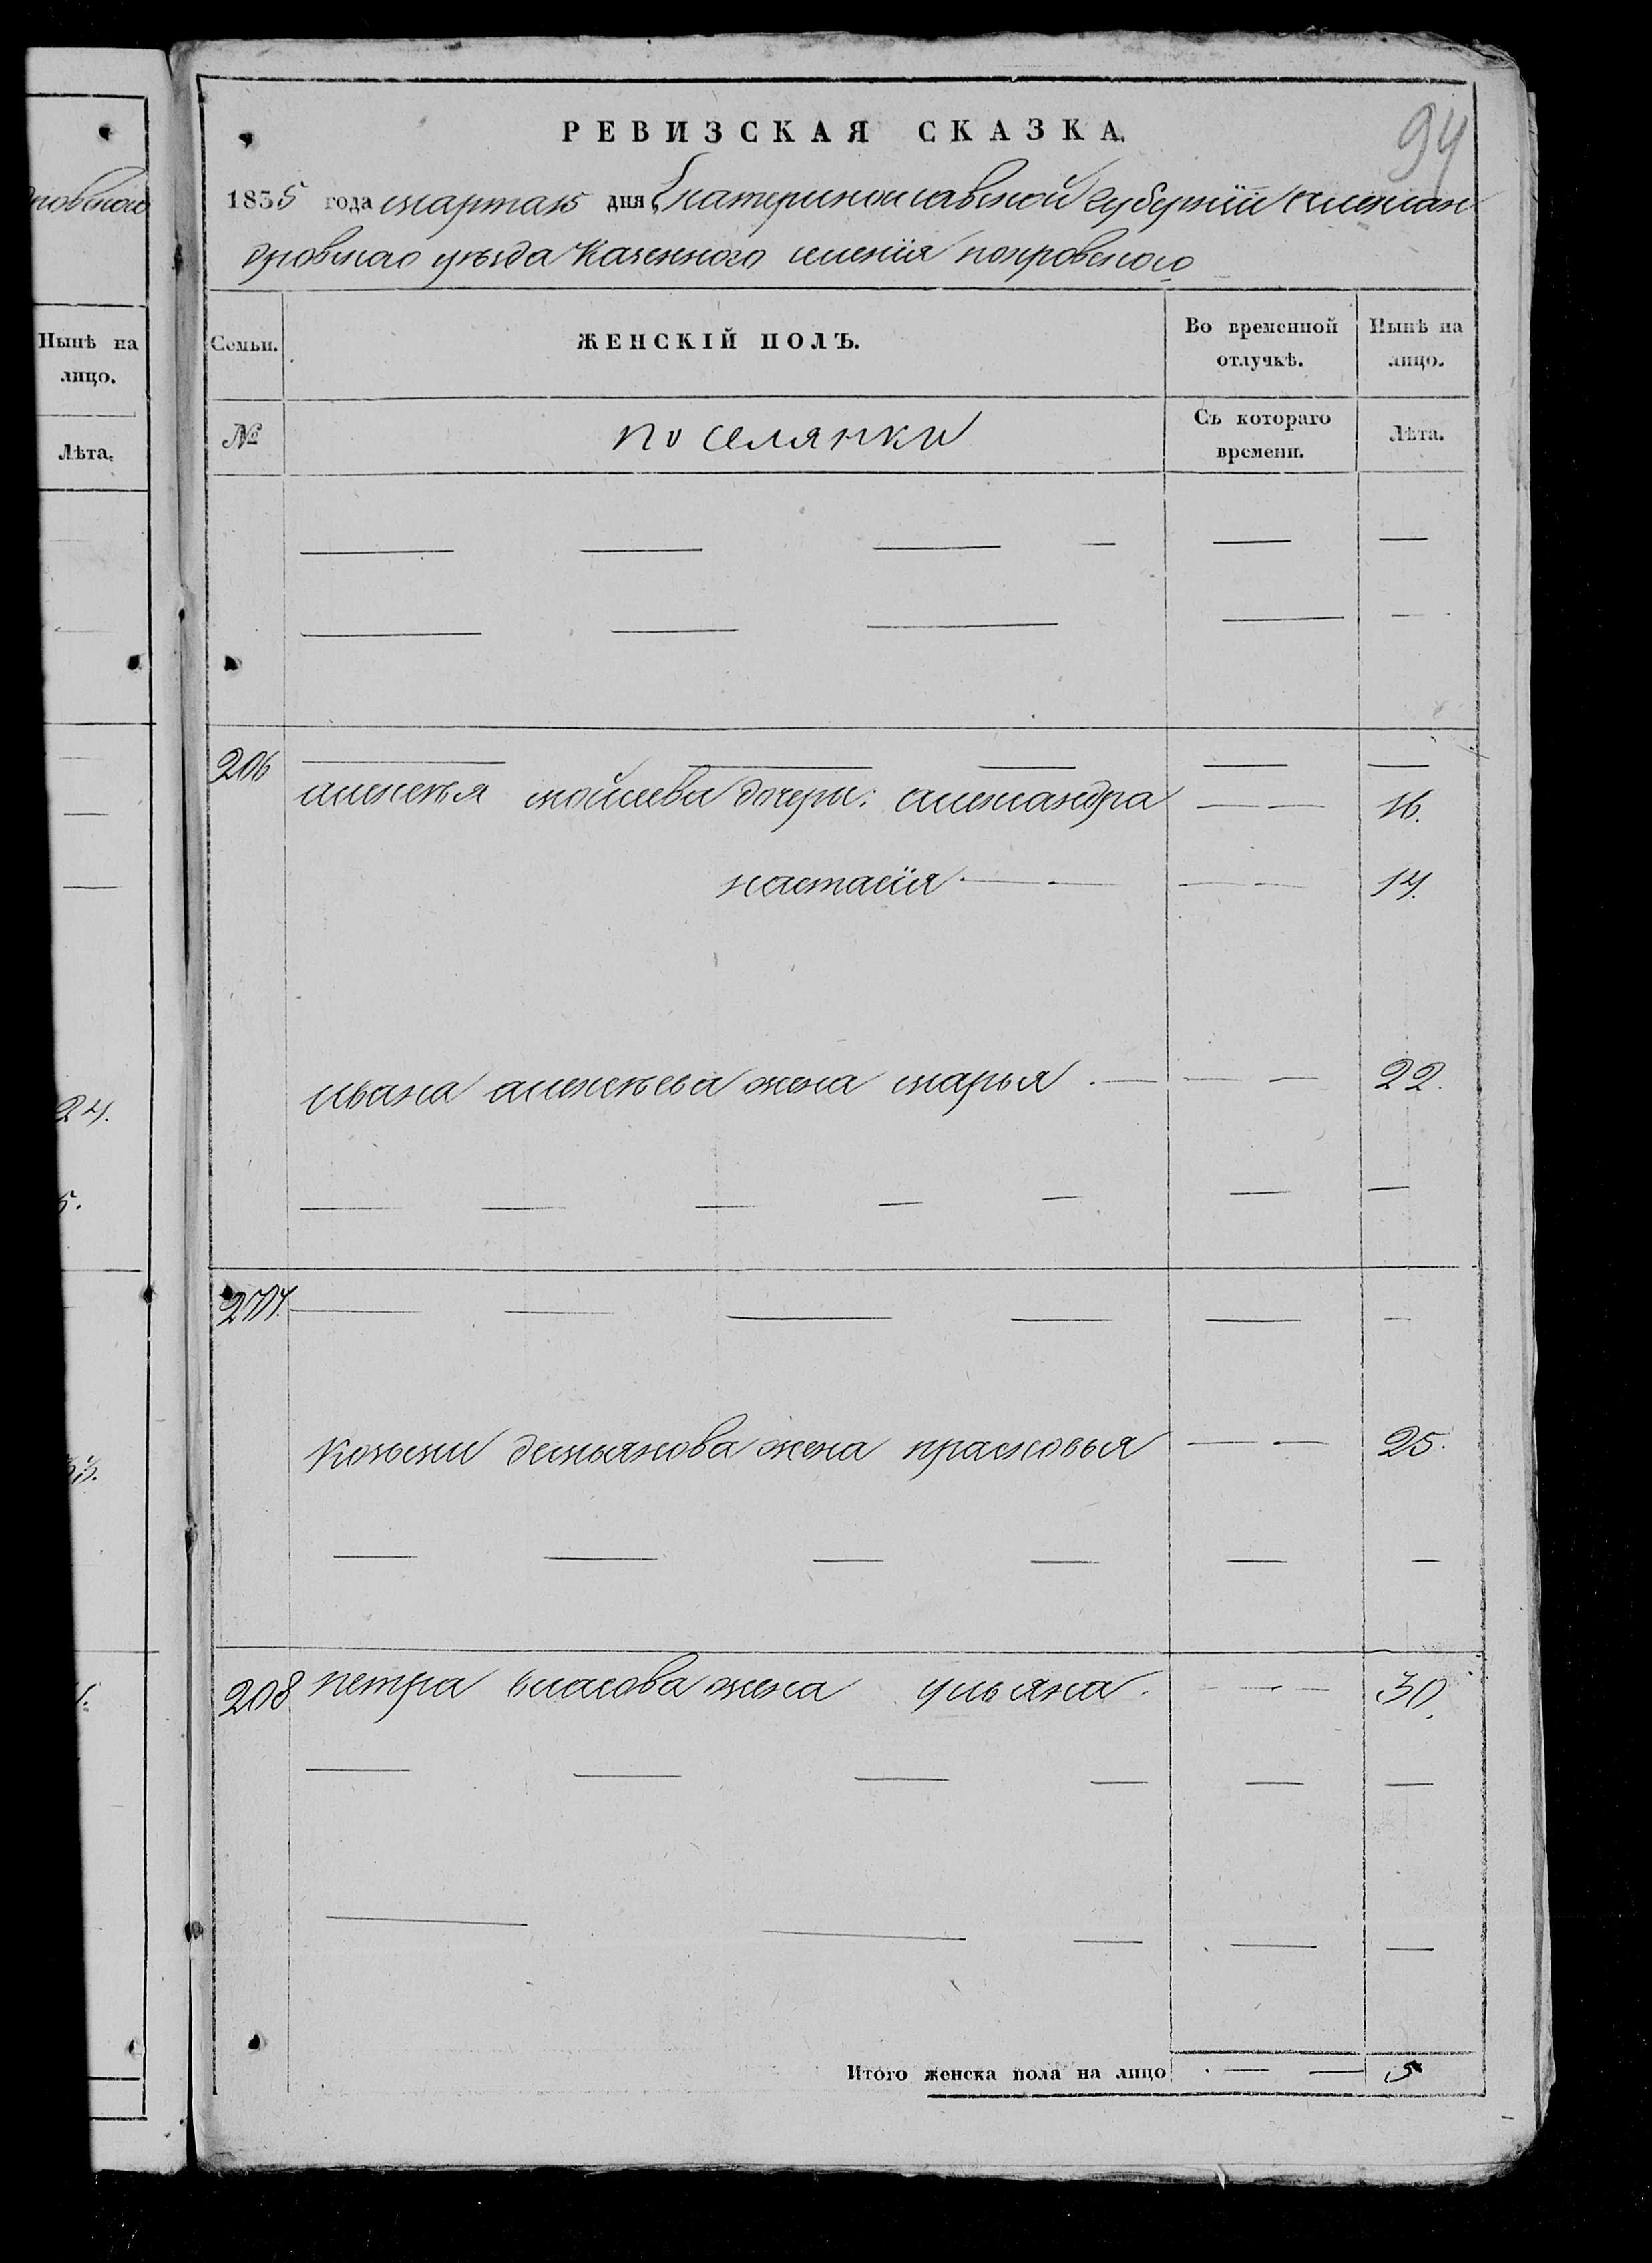 94
РЕВИЗСКАЯ СКАЗКА.
1835 года марта 15 дня Екатеринославской губернiи александровскаго уѣзда казенного селенiя покровского
Семьи.
ЖЕНСКІЙ ПОЛЪ.
Во временной отлучкѣ.
Нынѣ на лицо.
№
поселянки
Съ котораго времени.
Лѣта.
206
алексѣя мойсеева дочери: александра 16.
настасiя 14.
ивана алексѣева жена марья 22.
207.
козьмы демьянова жена прасковья 25.
208 петра власова жена ульяна. 30.
Итого женска пола на лицо 5
Нынѣ на
лицо.
Лѣта.
24.
5.